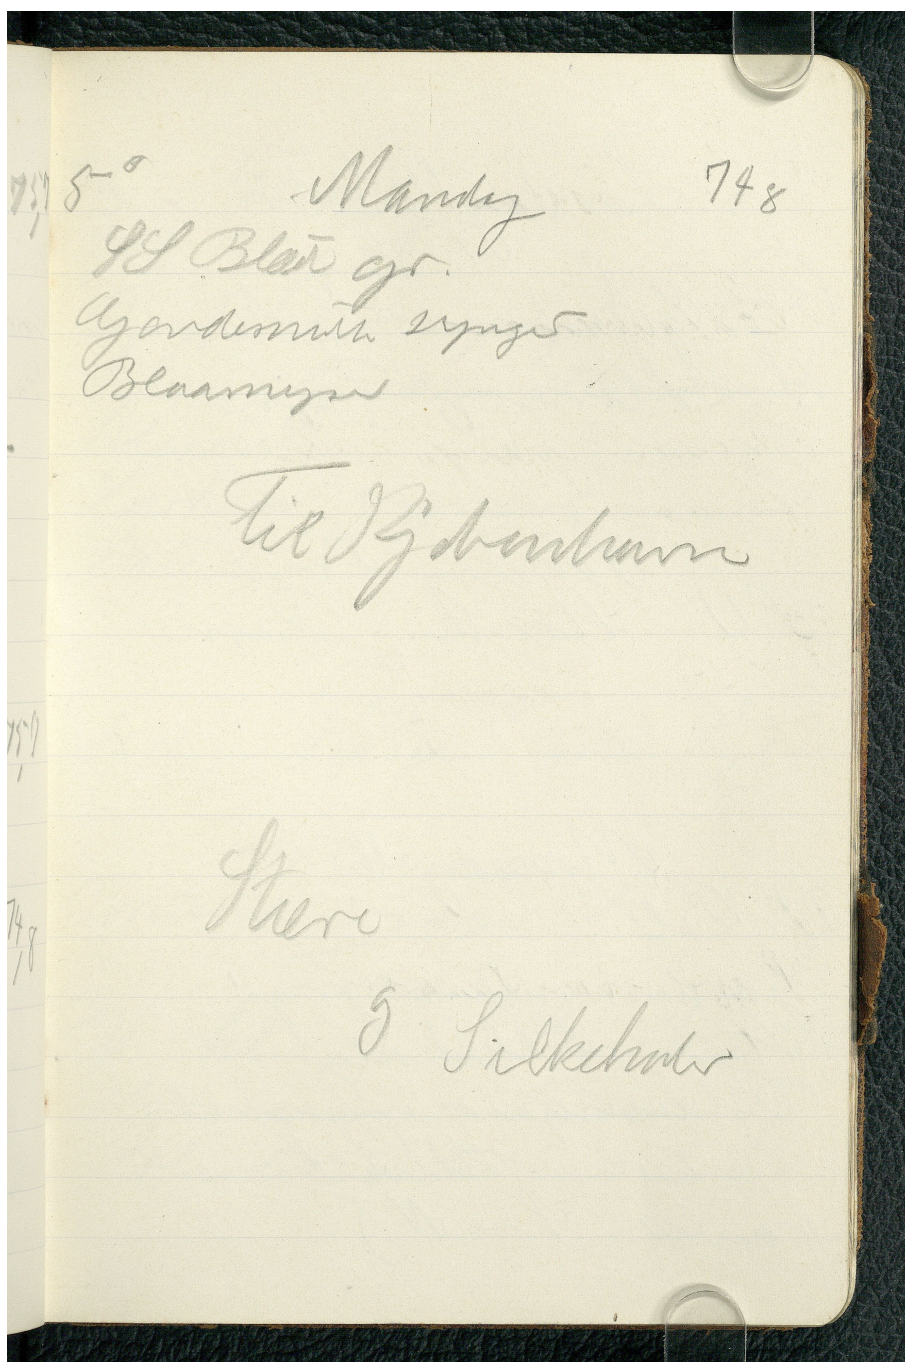 5° Mandag 748
SS Blæst gr.
Gjærdesmutte synger
Blaamejser
Til Kjøbenhavn
Stære
9 Silkehaler